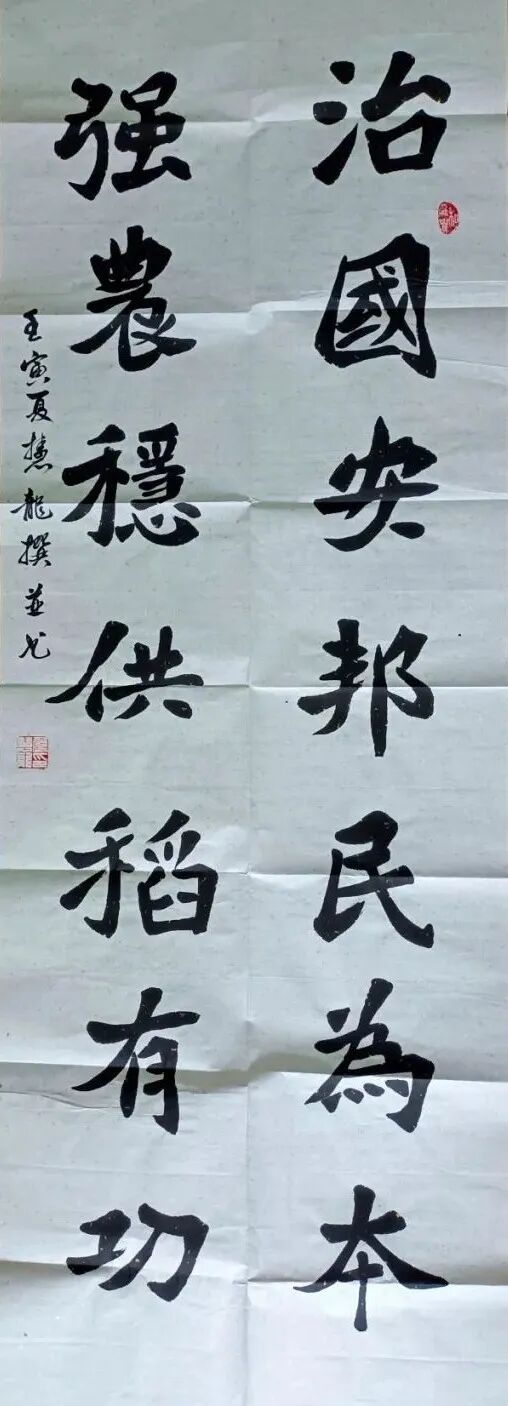 治國安邦民為本
强農穩供稻有功
壬寅夏慧龍撰並书